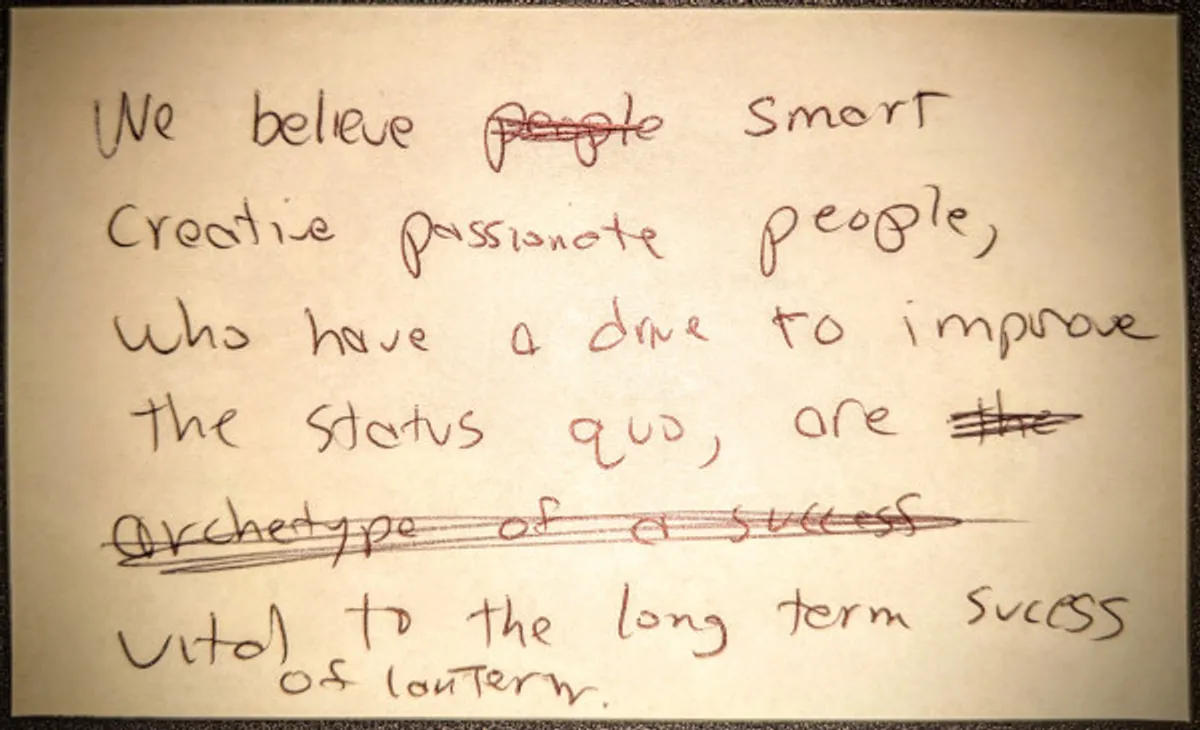 We believe people smart
Creative passionate people,
who have a drive to improve
the status quo, are the
archetype of a success
vital to the long term sucess
of lantern.